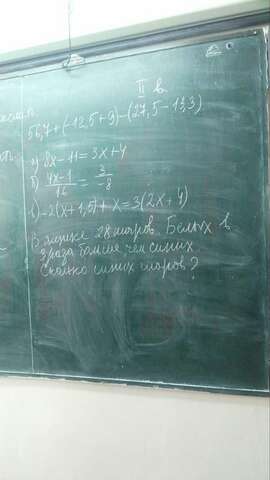 II в
56,7+(-12,5+9)-(27,5-13,3)
а) 8x-11=3x+4
б) 4x-1/16 = 3/-8
в) -2(x+1,5)+x=3(2x+4)
В ящике 28 шаров. Белых в
3 раза больше чем синих
Сколько синих шаров?